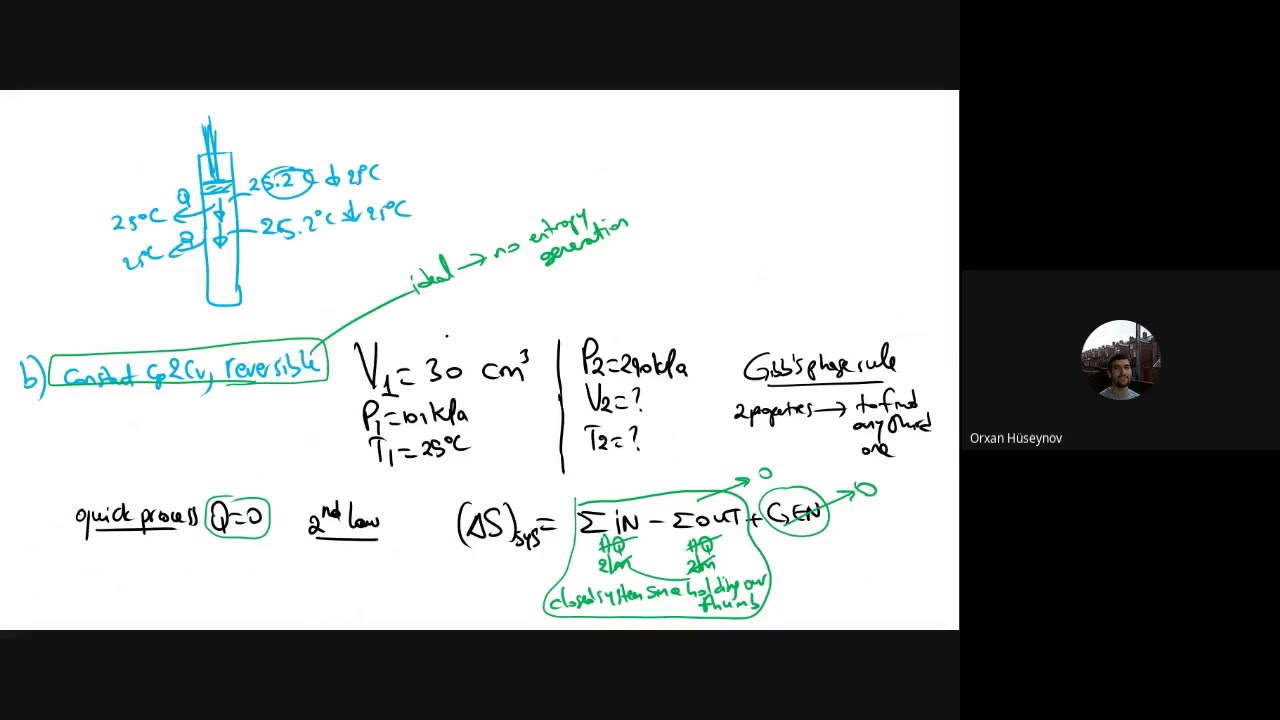 Q 25.2°C ↓ 25°C
25°C
Q 25.2°C ↓ 25°C
25°C
ideal → no entropy
generation
b) Constant Cp & Cv, reversible
V₁ = 30 cm³
P₁ = 101 kPa
T₁ = 25°C
P₂ = 290 kPa
V₂ = ?
T₂ = ?
Gibb's phase rule
2 properties → to find
any third
one
quick process Q=0 2nd law (ΔS)sys = Σ IN − Σ OUT + GEN
0 0
#Q #Q
2m 2m
closed system since holding our
thumb
Orxan Hüseynov